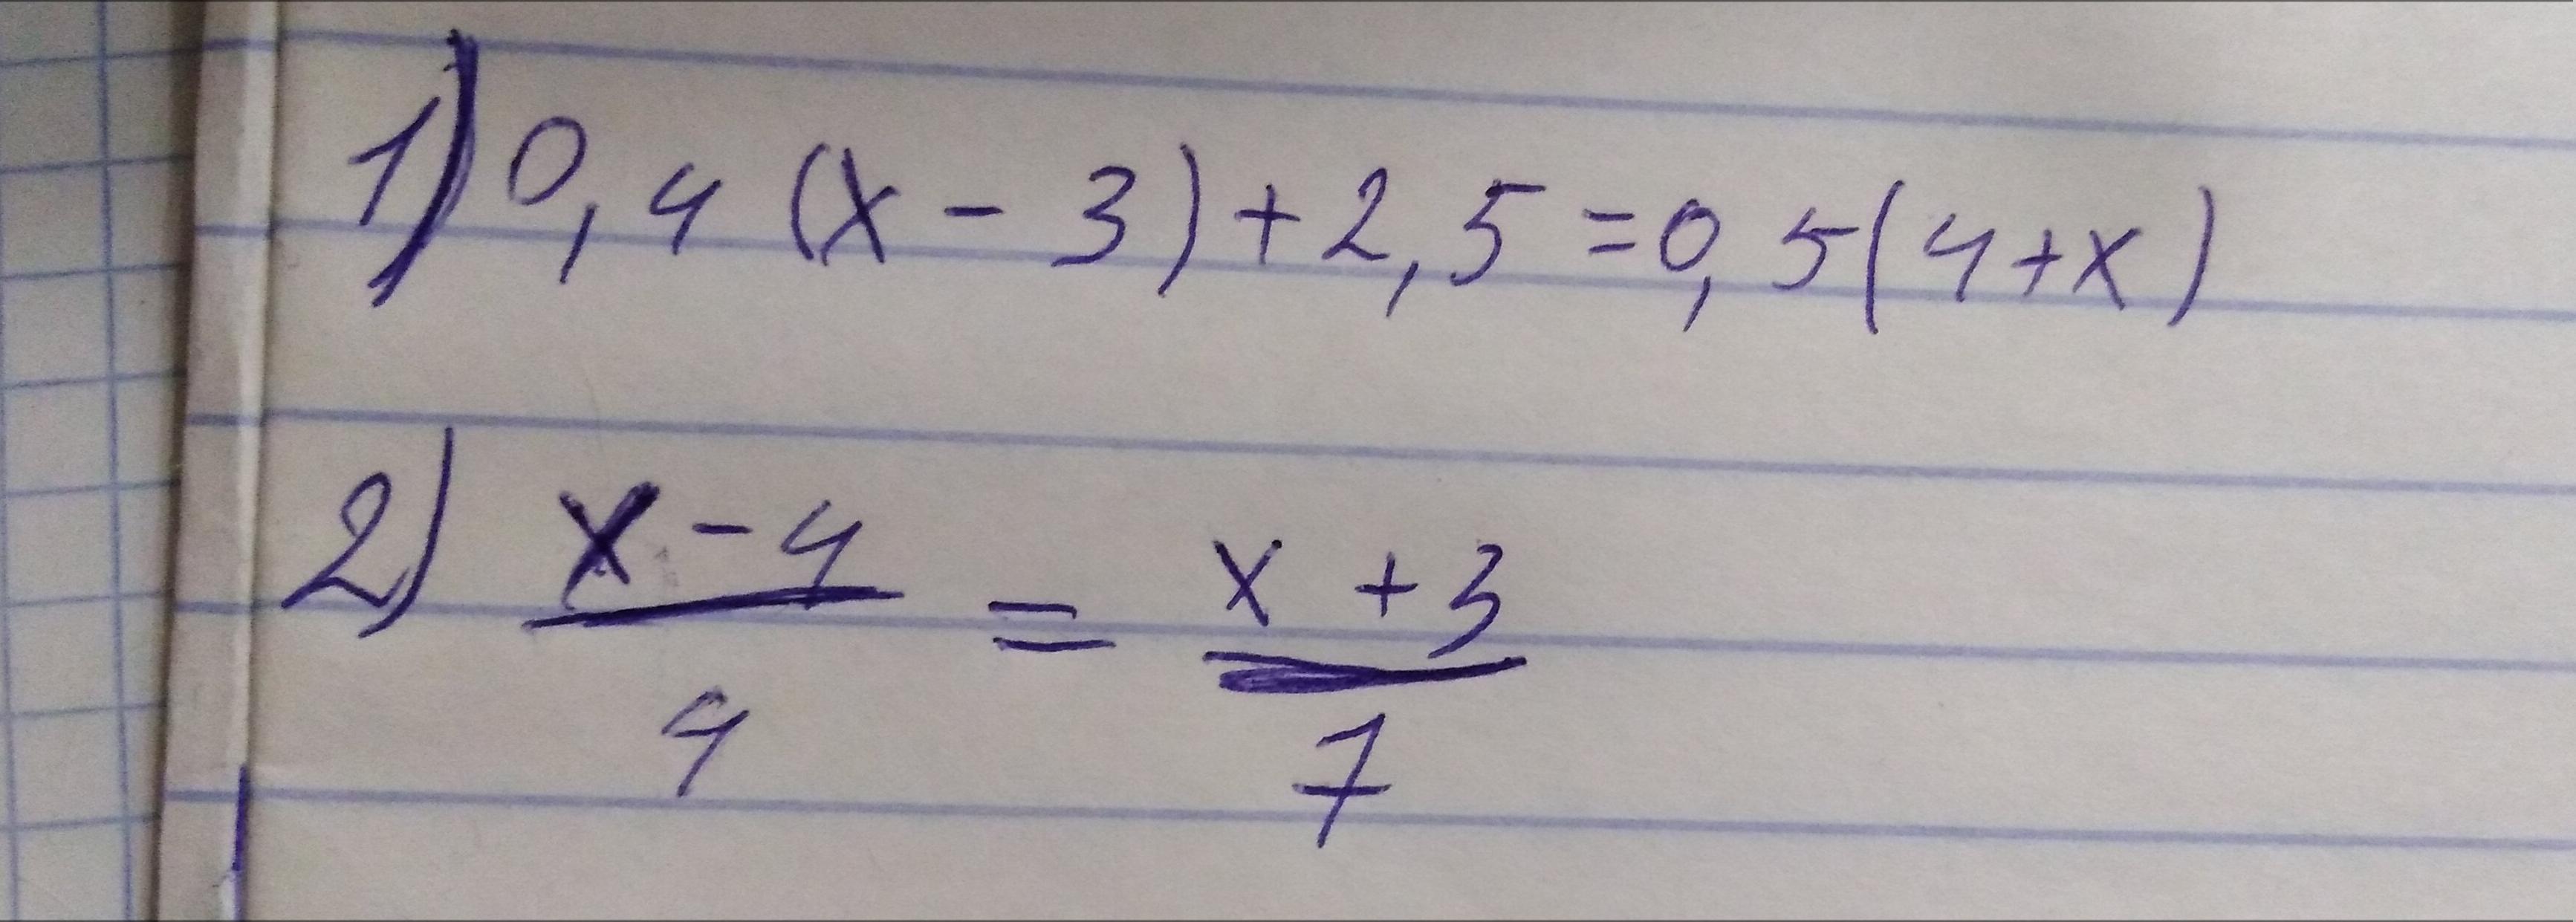 1) 0,4 (x - 3) + 2,5 = 0,5 (4 + x)
2) \frac{x - 4}{4} = \frac{x + 3}{7}